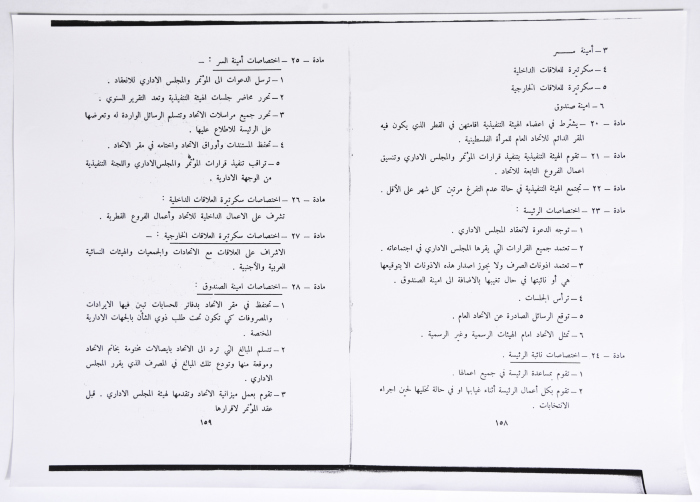 ٣ – أمينة ســـر
٤ – سكرتيرة للعلاقات الداخلية
٥ – سكرتيرة للعلاقات الخارجية
٦ – امينة صندوق
مادة – ٢٠ – يشترط في اعضاء الهيئة التنفيذية اقامتهن في القطر الذي يكون فيه
المقر الدائم للاتحاد العام للمرأة الفلسطينية .
مادة – ٢١ – تقوم الهيئة التنفيذية بتنفيذ قرارات المؤتمر والمجلس الاداري وتنسيق
اعمال الفروع التابعة للاتحاد .
مادة – ٢٢ – تجتمع الهيئة التنفيذية في حالة عدم التفرغ مرتين كل شهر على الأقل .
مادة – ٢٣ – اختصاصات الرئيسة :
١ – توجه الدعوة لانعقاد المجلس الاداري .
٢ – تعتمد جميع القرارات التي يقرها المجلس الاداري في اجتماعاته .
٣ – تعتمد اذونات الصرف ولا يجوز اصدار هذه الاذونات الا بتوقيعها
هي أو نائبتها في حال تغيبها بالاضافة الى امينة الصندوق .
٤ – ترأس الجلسات .
٥ – توقع الرسائل الصادرة عن الاتحاد العام .
٦ – تمثل الاتحاد امام الهيئات الرسمية وغير الرسمية .
مادة – ٢٤ – اختصاصات نائبة الرئيسة .
١ – تقوم بمساعدة الرئيسة في جميع اعمالها .
٢ – تقوم بكل أعمال الرئيسة أثناء غيابها او في حالة تخليها لحين اجراء
الانتخابات .
١٥٨
مادة – ٢٥ – اختصاصات أمينة السر : –
١ – ترسل الدعوات الى المؤتمر والمجلس الاداري للانعقاد .
٢ – تحرر محاضر جلسات الهيئة التنفيذية وتعد التقرير السنوي .
٣ – تحرر جميع مراسلات الاتحاد وتتسلم الرسائل الواردة له وتعرضها
على الرئيسة للاطلاع عليها .
٤ – تحتفظ المستندات وأوراق الاتحاد واختامه في مقر الاتحاد .
٥ – تراقب تنفيذ قرارات المؤتمر والمجلس الاداري واللجنة التنفيذية
من الوجهة الادارية .
مادة – ٢٦ – اختصاصات سكرتيرة العلاقات الداخلية :
تشرف على الاعمال الداخلية للاتحاد وأعمال الفروع القطرية .
مادة – ٢٧ – اختصاصات سكرتيرة العلاقات الخارجية : –
الاشراف على العلاقات مع الاتحادات والجمعيات والهيئات النسائية
العربية والأجنبية .
مادة – ٢٨ – اختصاصات امينة الصندوق :
١ – تحتفظ في مقر الاتحاد بدفاتر للحسابات تبين فيها الايرادات
والمصروفات كي تكون تحت طلب ذوي الشأن بالجهات الادارية
المختصة .
٢ – تتسلم المبالغ التي ترد الى الاتحاد بايصالات مختومة بخاتم الاتحاد
وموقعة منها وتودع تلك المبالغ في المصرف الذي يقرر المجلس
الاداري .
٣ – تقوم بعمل ميزانية الاتحاد وتقدمها لهيئة المجلس الاداري . قبل
عقد المؤتمر لاقرارها
١٥٩